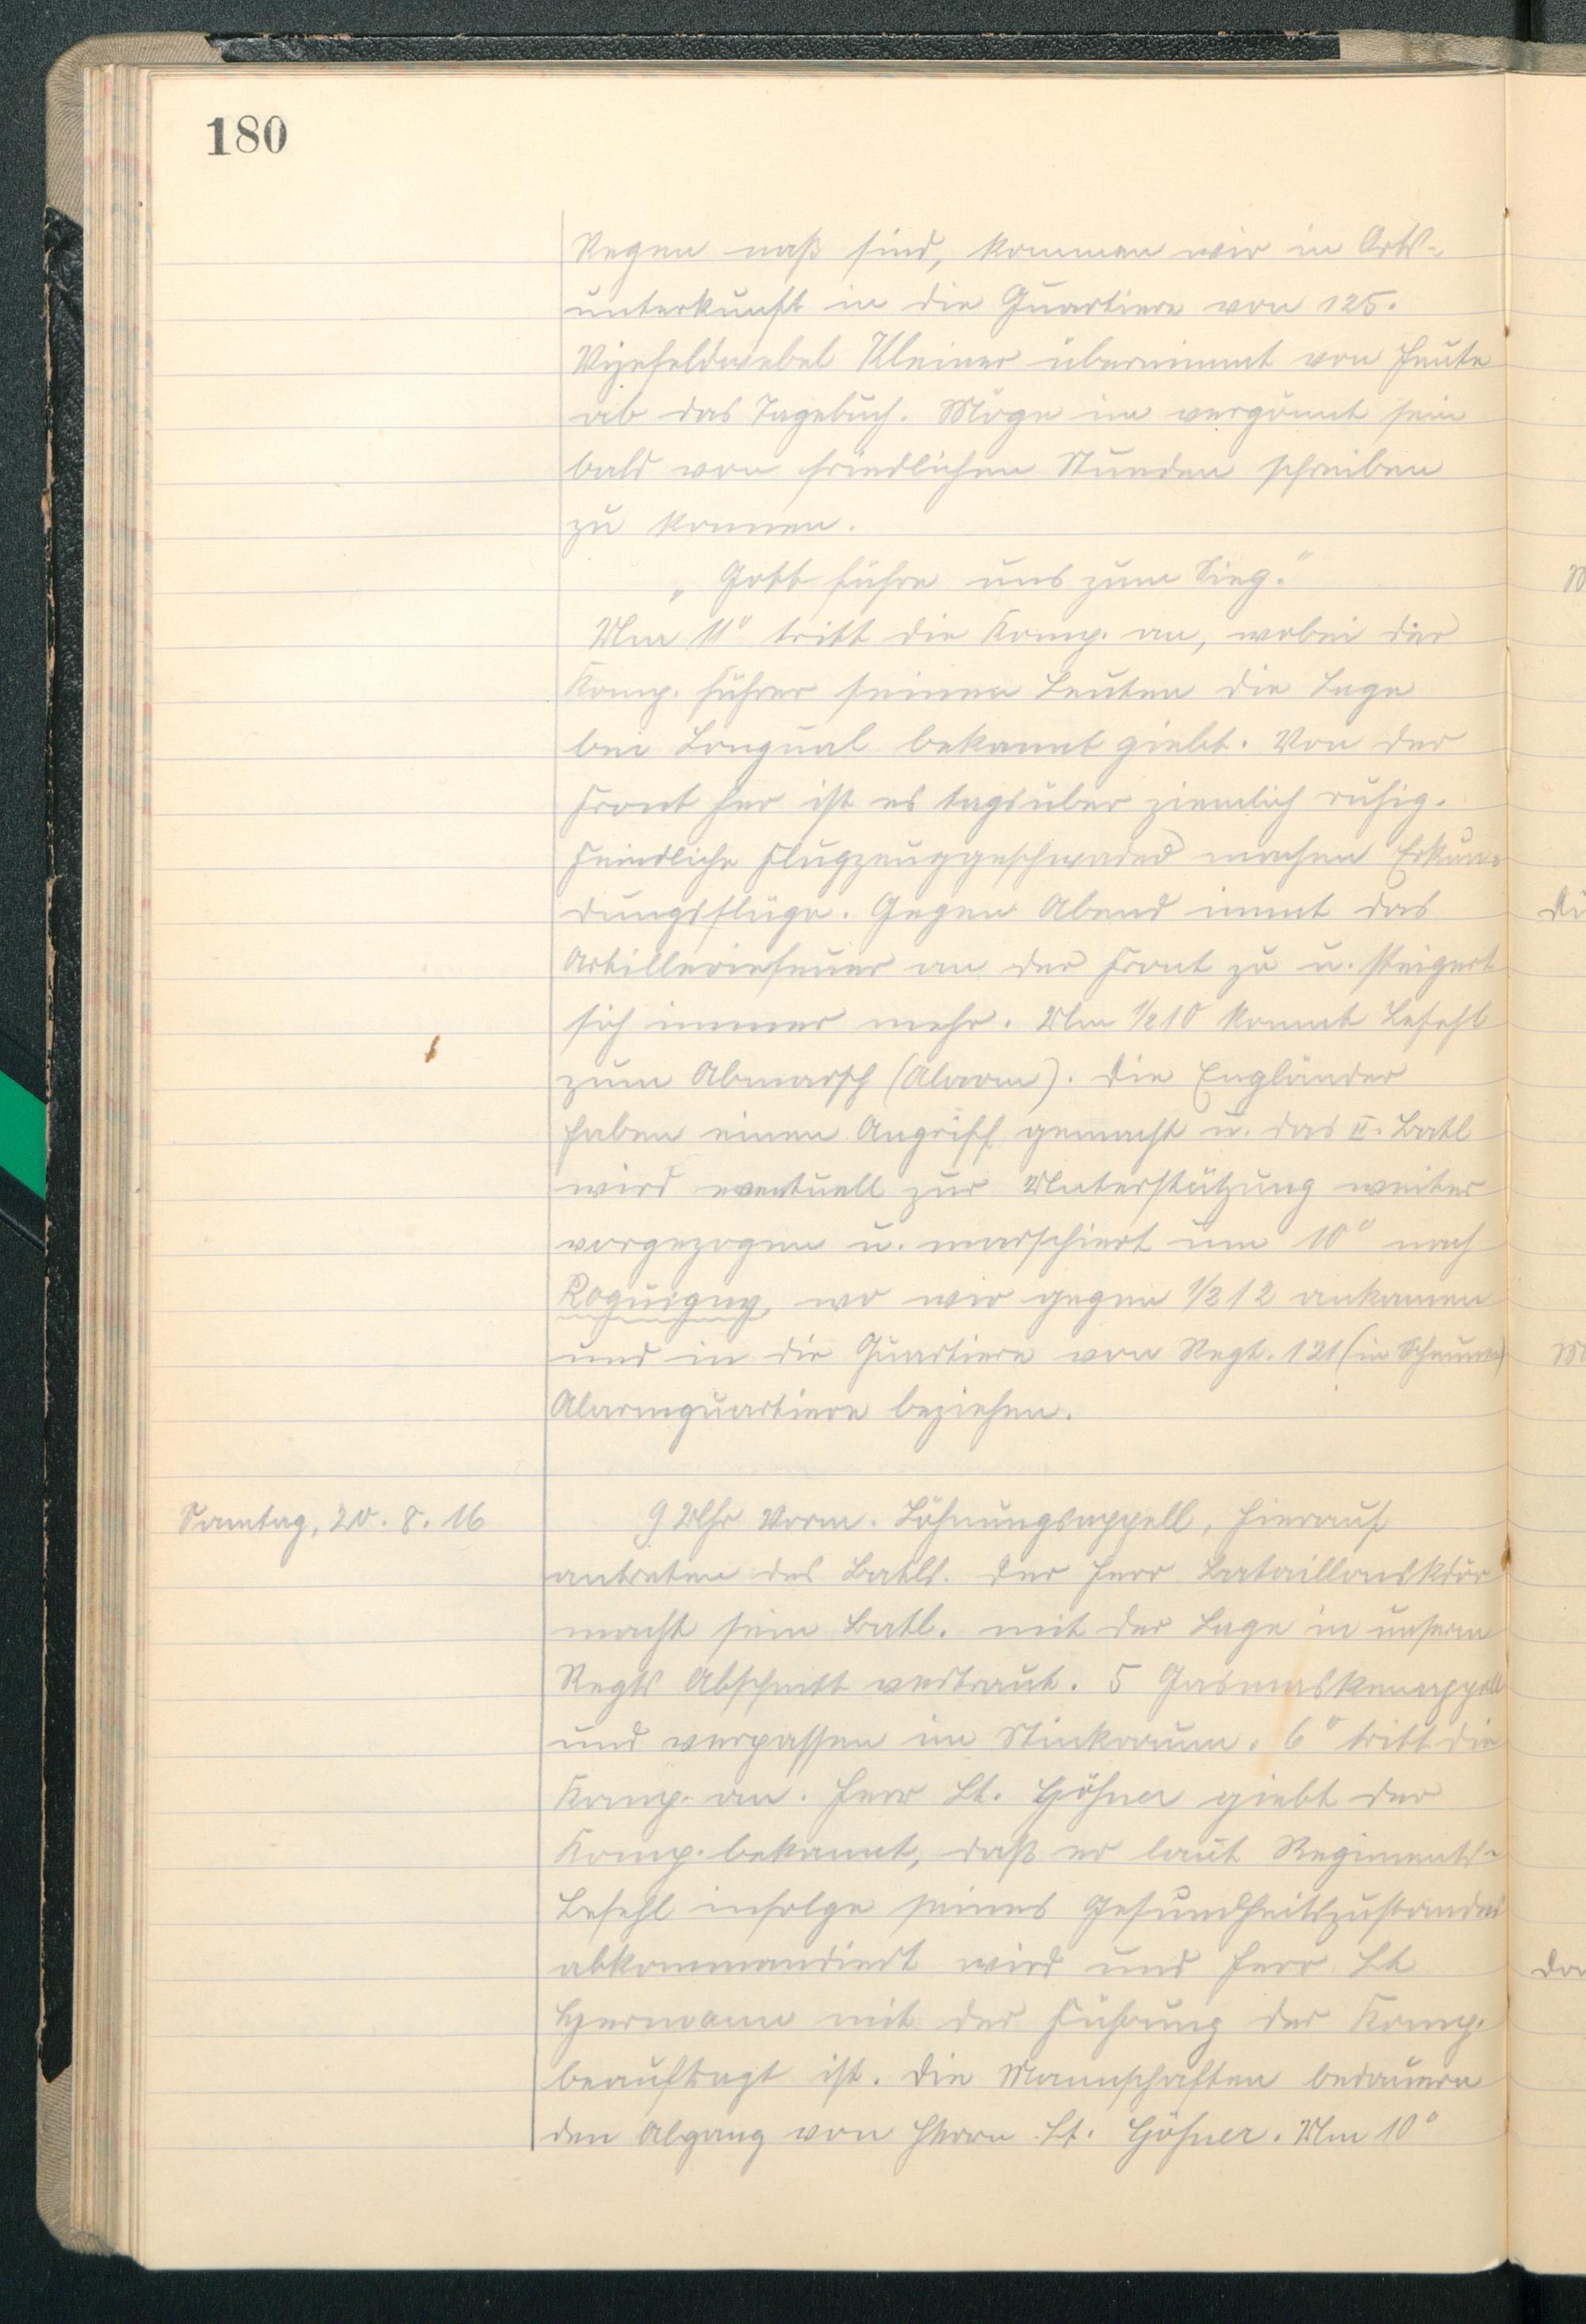 180
Regen naß sind, kommen wir in Orts-
unterkunft in die Quartiere von 125.
Vizefeldwebel Kleiner übernimmt von heute
ab das Tagebuch. Möge im vergönnt sein
bald von friedlichen Stunden schreiben
zu können.
„Gott führe uns zum Sieg."
Um 11° tritt die Komp. an, wobei der
Komp. führer seinen Leuten die Lage
bei Longual bekannt giebt. Von der
Front her ist es tagsüber ziemlich ruhig.
Feindliche Flugzeuggeschwader machen Erkun-
dungsflüge. Gegen Abend nimmt das
Artilleriefeuer an der Front zu u. steigert
sich immer mehr. Um 1/2 10 kommt Befehl
zum Abmarsch (Alarm). Die Engländer
haben einen Angriff gemacht u. das II. Batl
wird eventuell zur Unterstützung weiter
vorgezogen u. marschiert um 10° nach
Roquigny, wo wir gegen 1/2 12 ankamen
und in die Quartiere von Regt. 121 (in Scheunen)
Alarmquartiere beziehen.
Sonntag, 20. 8. 16
9 Uhr Vorm. Löhnungsappell, hierauf
antreten des Batls. Der Herr Bataillonskdör
macht sein Batl. mit der Lage in unserm
Regts Abschnitt vertraut. 5 Gasmaskenappell
und verpassen im Stinkraum. 6° tritt die
Komp. an. Herr Lt. Höhner giebt der
Komp. bekannt, daß er laut Regiments-
Befehl infolge seines Gesundheitszustandes
abkommandiert wird und Herr Lt
Hermann mit der Führung der Komp.
beauftragt ist. Die Mannschaften bedauern
den Abgang von Herrn Lt. Höhner. Um 10°